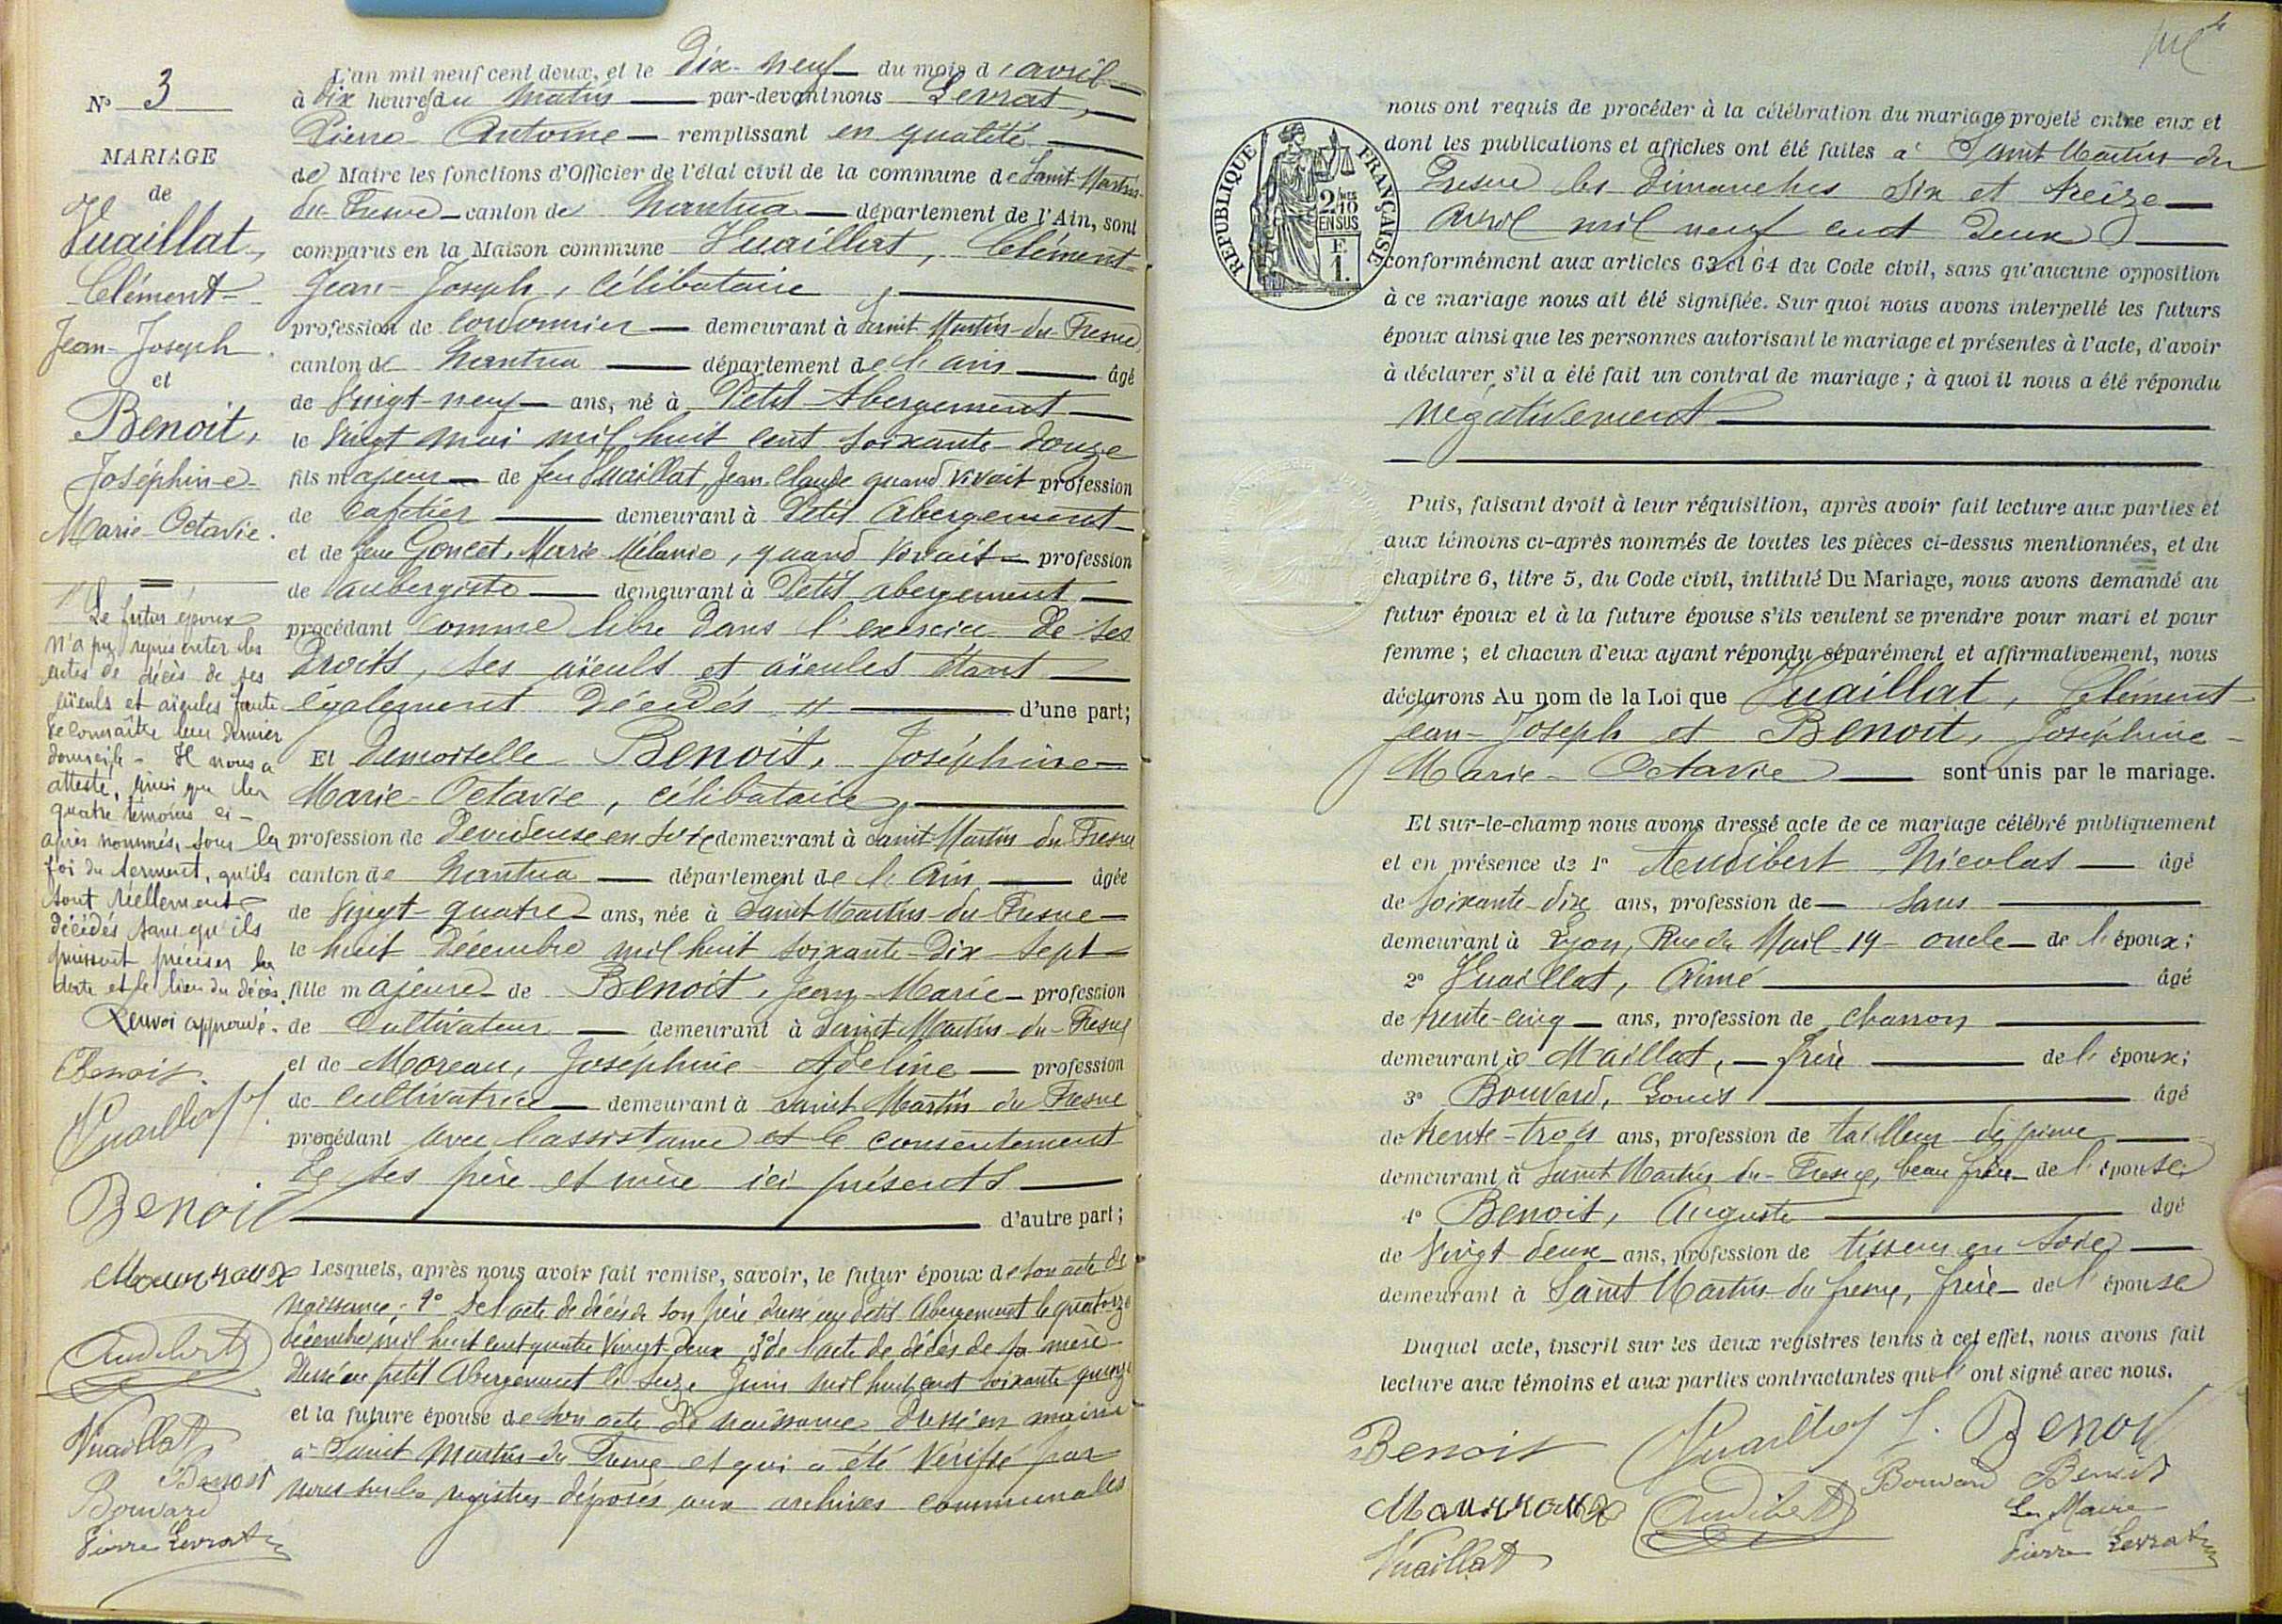 N° 3
MARIAGE
de
Vuaillat,
Clément-
Jean-Joseph
et
Benoit,
Joséphine-
Marie-Octavie.
Le futur époux
n'a pu représenter les
actes de décès de ses
aïeuls et aïeules faute
de connaître leur dernier
domicile - Il nous a
attesté, ainsi que les
quatre témoins ci-
après nommés, sous la
foi du serment, qu'ils
sont réellement
décédés sans qu'ils
puissent préciser la
date et le lieu du décès.
Renvoi approuvé.
Benoit
Vuaillat
Benoit
Audibert
Vuaillat
Benoit
Bouvard
Pierre Levrat
L'an mil neuf cent deux, et le Dix-neuf du mois d'avril
à dix heures du matin par-devant nous Levrat,
Pierre Antoine remplissant en qualité
de Maire les fonctions d'Officier de l'état civil de la commune de Saint-Martin-
du-Fresne canton de Nantua département de l'Ain, sont
comparus en la Maison commune Vuaillat, Clément-
Jean-Joseph, célibataire,
profession de Cordonnier demeurant à Saint-Martin-du-Fresne,
canton de Nantua département de l'ain âgé
de Vingt-neuf ans, né à Petit Abergement
le Vingt mai mil huit cent soixante-douze
fils majeur de feu Vuaillat, Jean Claude quand vivait profession
de Cafetier demeurant à Petit Abergement
et de feue Goncet, Marie Mélanie, quand vivait profession
de aubergiste demeurant à Petit abergement
procédant comme libre dans l'exercice de ses
Droits, ses aïeuls et aïeules étant
également Décédés # d'une part;
Et Demoiselle Benoit, Joséphine
Marie-Octavie, célibataire,
profession de Devideuse en soie demeurant à Saint-Martin du Fresne
canton de Nantua département de l'Ain âgée
de Vingt-quatre ans, née à Saint Martin-du-Fresne
le huit Décembre mil huit soixante-Dix-sept
fille majeure de Benoit, Jean-Marie profession
de Cultivateur demeurant à Saint-Martin-du-Fresne
et de Moreau, Joséphine-Adeline profession
de Cultivatrice demeurant à Saint Martin du Fresne
procédant avec l'assistance et le consentement
de ses père et mère ici présents
d'autre part;
Lesquels, après nous avoir fait remise, savoir, le futur époux de son acte de
naissance; 2° de l'acte de décès de son père dressé au Petit Abergement le quatorze
décembre mil huit cent quatre Vingt deux, 3° de l'acte de décès de sa mère
dressé au petit Abergement le seize Juin mil huit cent soixante quinze
et la future épouse de son acte de naissance Dressé en mairie
à Saint Martin du Fresne et qui a été Vérifié par
nous sur les registres déposés aux archives communales
4
RÉPUBLIQUE FRANÇAISE
2/10 EN SUS
F.
1.
nous ont requis de procéder à la célébration du mariage projeté entre eux et
dont les publications et affiches ont été faites à Saint Martin-du
Fresne les Dimanches Six et treize
Avril mil neuf cent Deux
conformément aux articles 63 et 64 du Code civil, sans qu'aucune opposition
à ce mariage nous ait été signifiée. Sur quoi nous avons interpellé les futurs
époux ainsi que les personnes autorisant le mariage et présentes à l'acte, d'avoir
à déclarer s'il a été fait un contrat de mariage; à quoi il nous a été répondu
négativement
Puis, faisant droit à leur réquisition, après avoir fait lecture aux parties et
aux témoins ci-après nommés de toutes les pièces ci-dessus mentionnées, et du
chapitre 6, titre 5, du Code civil, intitulé Du Mariage, nous avons demandé au
futur époux et à la future épouse s'ils veulent se prendre pour mari et pour
femme; et chacun d'eux ayant répondu séparément et affirmativement, nous
déclarons Au nom de la Loi que Vuaillat, Clément-
Jean-Joseph et Benoit, Joséphine-
Marie-Octavie sont unis par le mariage.
Et sur-le-champ nous avons dressé acte de ce mariage célébré publiquement
et en présence de 1° Audibert Nicolas âgé
de Soixante-dix ans, profession de sans
demeurant à Lyon, Rue du Mail 19 oncle de l'époux;
2° Vuaillat, Aimé âgé
de trente-cinq ans, profession de charron
demeurant à Maillat, frère de l'époux;
3° Bouvard, Louis âgé
de trente-trois ans, profession de tailleur de pierre
demeurant à Saint Martin du-Fresne, beau frère de l'épouse;
4° Benoit, Auguste âgé
de Vingt deux ans, profession de tisseur en soie
demeurant à Saint Martin-du fresne, frère de l'épouse
Duquel acte, inscrit sur les deux registres tenus à cet effet, nous avons fait
lecture aux témoins et aux parties contractantes qui l'ont signé avec nous.
Benoit Vuaillat J. Benoit
Audibert Bouvard Benoit
Vuaillat
Le Maire
Pierre Levrat